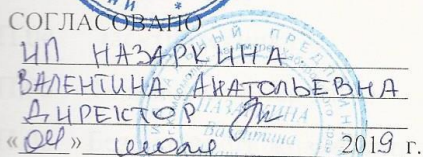 СОГЛАСОВАНО
ИП НАЗАРКИНА
ВАЛЕНТИНА АНАТОЛЬЕВНА
ДИРЕКТОР
«04» июля 2019 г.